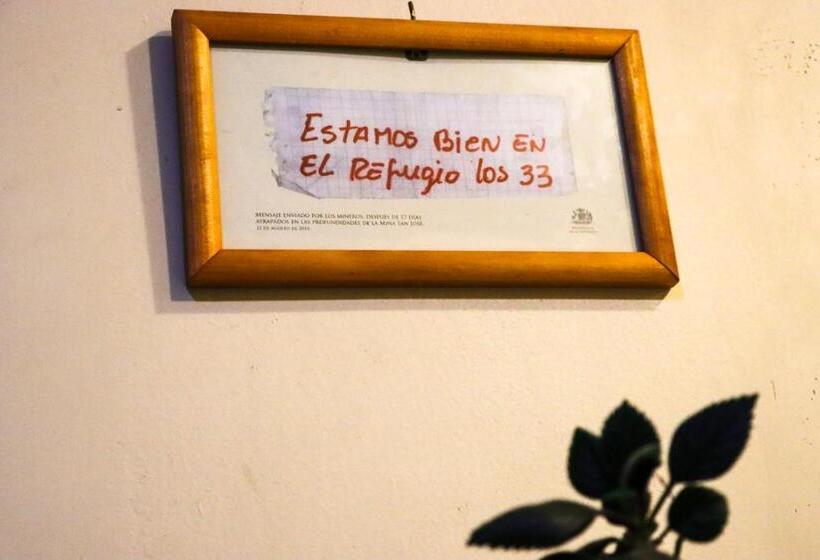 EstAMOS BiEN EN
EL REfugio los 33
MENSAJE ENVIADO POR LOS MINEROS, DESPUÉS DE 17 DÍAS
ATRAPADOS EN LAS PROFUNDIDADES DE LA MINA SAN JOSÉ.
22 DE AGOSTO DE 2010